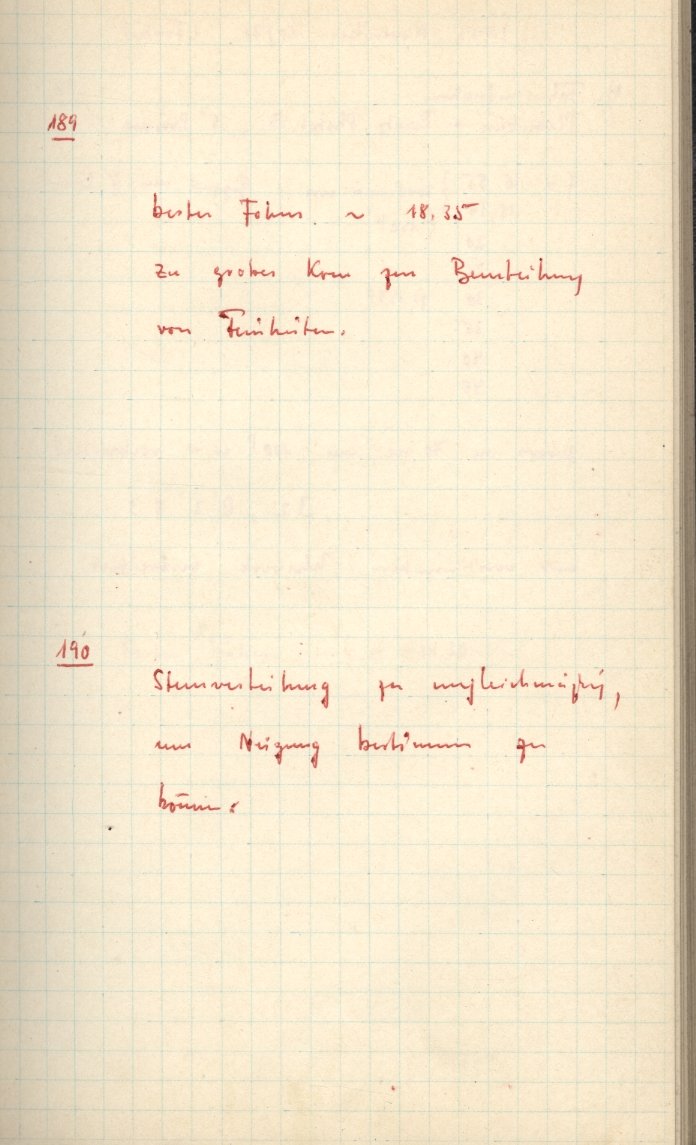 189
bester Fokus ~ 18.35
zu grobes Korn zur Beurteilung
von Feinheiten.
190
Sternverteilung zu ungleichmäßig,
um Neigung bestimmen zu
können.